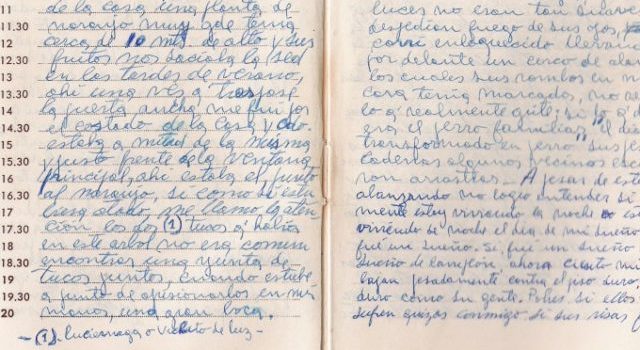 11 de la casa una planta de
11.30 naranjo muy gde. tenía
12 cerca de 10 mts. de alto y sus
12.30 frutos nos saciaba la sed
13 en las tardes de verano,
13.30 ahí una vez a
14 la puerta ancha me fui por
14.30 el costado de la casa y cdo.
15 estaba a mitad de la misma
15.30 y justo frente de la ventana
16 principal, ahí estaba el
16.30 al naranjo, si como si estu
17 biera atado, me llamo la aten
17.30 ción los dos (1) tucos q' habías
18 en este arbol no era comun
18.30 encontrar una yunta de
19 tucos juntos, cuando estube
19.30 a punto de aprisionarlos en mis
20 manos, una gran boca.
- (1). luciernaga o Vichito de luz -
luces no eran tan
despedian fuego de sus ojos,
corri enloquecido
por delante un cerco de alam
los cuales sus rombos en mi
cara tenía marcados, no re
lo q' realmente
era el perro familiar, el
transformado en perro
cadenas algunos vecinos
ron arrastrar - A pesar de est
alcanzando no logro entender si
mente estoy viviendo de noche
viviendo de noche el dia de mi sueño
fué un sueño. Si, fué un sueño
sueño de ahora ciento mi
bajan pesadamente contra el piso duro,
duro como su gente. Pobres si ellos
sufren quizas conmigo si sus risas